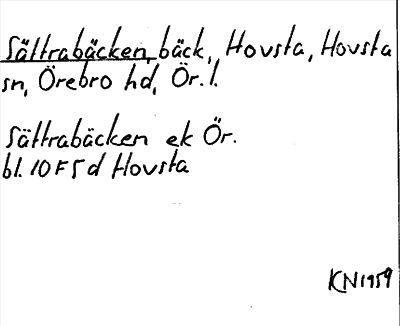 Sättrabäcken, bäck, Hovsta, Hovsta
sn, Örebro hd, Ör. l.
Sättrabäcken ek Ör.
bl. 10F5d Hovsta
KN1959